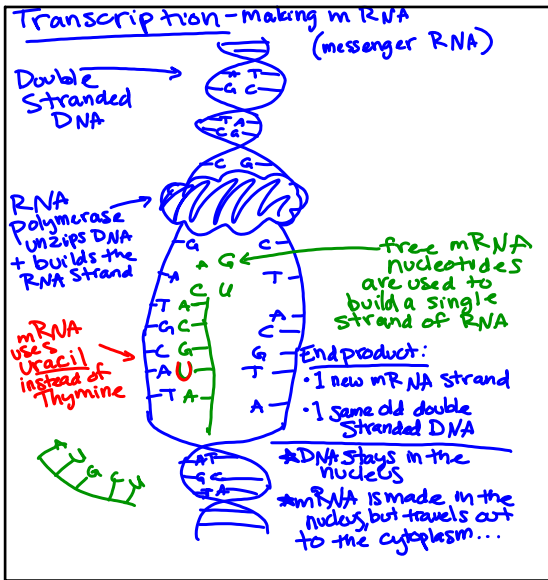 Transcription - making mRNA
(messenger RNA)
Double
Stranded
DNA
A T
G C
T A
C G
C G
RNA
Polymerase
unzips DNA
+ builds the
RNA strand
G C
A G
A T
C U
T A A
G C C
C G G
A U T
T A A
free mRNA
nucleotides
are used to
build a single
strand of RNA
mRNA
uses
Uracil
instead of
Thymine
End product:
• 1 new mRNA strand
• 1 same old double
Stranded DNA
*DNA stays in the
nucleus
*mRNA is made in the
nucleus, but travels out
to the cytoplasm...
A U G C U
A T
G C
T A